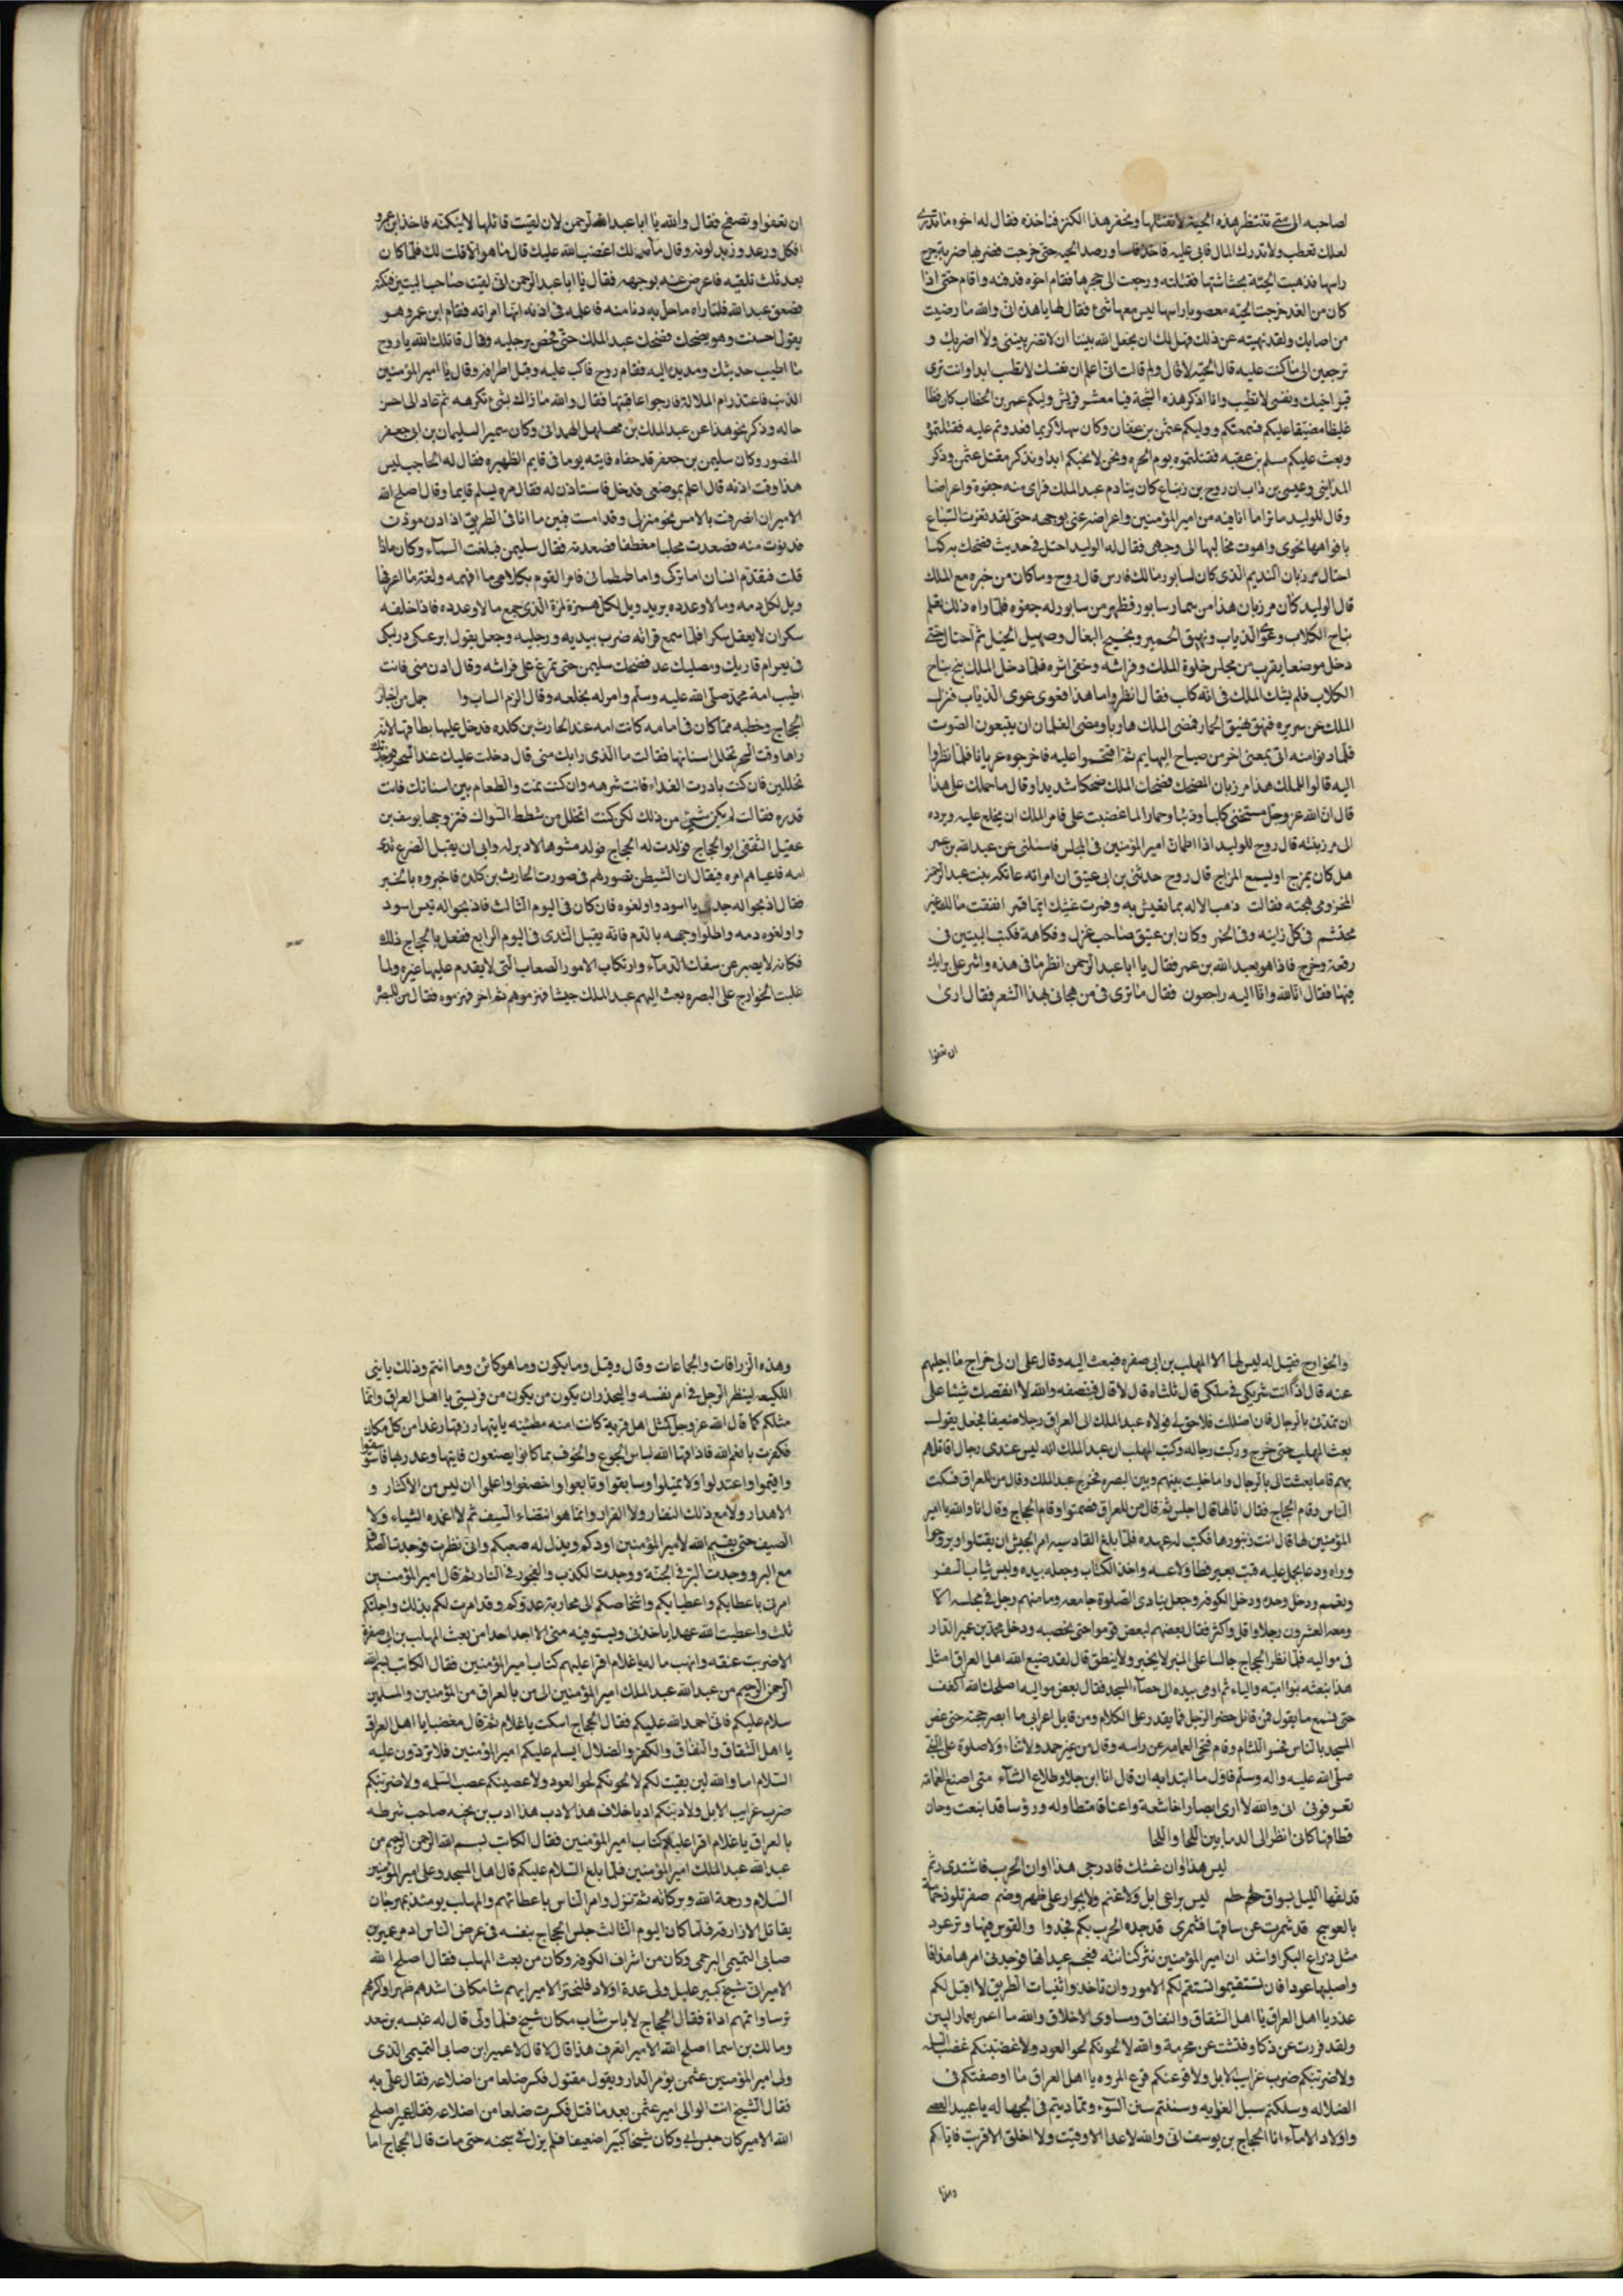 لصاحبه الى متى تنتظر هذه الحية لا نقتلها ونحفر هذا الكنز فناخذه فقال له اخوه ما تدرى
لعلك تعطب ولا تدرك المال فابى عليه فاخذ فاسا ورصد الحيه حتى خرجت فضربها ضربة جرح
راسها فذهبت الحيّة بحثاشتها فقتلته ورجعت الى حجرها فقام اخوه فدفنه واقام حتى اذا
كان من الغد خرجت الحيّه معصوبا راسها ليس معها شئ فقال لها يا هذه انى والله ما رضيت
من اصابك ولقد نهيته عن ذلك فهل لك ان يجعل الله بيننا ان لا تضرينى ولا اضربك و
ترجعين الى ما كنت عليه قال الحيّه لا قال ولم قالت انى اعلم ان نفسك لا تطيب ابدا وانت ترى
قبر اخيك ونفسى لا تطيب وانا اذكر هذه الشجة فيا معشر قريش وليكم عمر بن الخطاب كان فظا
غليظا مضيقا عليكم فسمعتم ووليكم عثمن بن عفان وكان سهلا كريما فعدوتم عليه فقتلتموه
وبعث عليكم مسلم بن عقبه فقتلتموه يوم الحره ونحن لا نحبكم ابدا ونذكر مقتل عثمن وذكر
المداينى وعيسى بن داب ان روح بن زنباع كان ينادم عبد الملك فراى منه جفوة واعراضا
وقال للوليد ما ترا ما انا فيه من امير المؤمنين واعراضه عنى بوجهه حتى لقد نغرت السّباع
بافواهها نحوى واهوت مخالبها الى وجهى فقال له الوليد احتل فى حديث تضحك به كما
احتال مرزبان النديم الذى كان لسابور مالك فارس قال روح وما كان من خبره مع الملك
قال الوليد كان مرزبان هذا من سمار سابور فظهر من سابور له جفوة فلما راه ذلك تعلم
نباح الكلاب وعوى الذياب ونهيق الحمير وشحيج البغال وصهيل الخيل ثم احتال حتى
دخل موضعا يقرب من مجلس خلوة الملك وفراشه وخفى اثره فلما دخل الملك نبح نباح
الكلاب فلم يشك الملك فى انه كلب فقال انظروا ما هذا فعوى عوى الذياب فنزل
الملك عن سريره فنهق نهيق الحمار فمضى الملك هاربا ومضى الغلمان يتبعون الصّوت
فلما دنوا منه اتى بمعنى اخر من صياح البهايم ثم اقتحموا عليه فاخرجوه عريانا فلما نظروا
اليه قالوا للملك هذا مرزبان المضحك فضحك الملك ضحكا شديدا وقال ما حملك على هذا
قال انّ الله عز وجل مسخنى كلبا وذئبا وحمارا لما غضبت على فامر الملك ان يخلع عليه ويرده
الى مرزبته قال روح للوليد اذا اطمان امير المؤمنين فى المجلس فاسئلنى عن عبد الله بن عمر
هل كان يمزح او يسمع المزاح قال روح حدثنى بن ابى عتيق ان امراته عاتكه بنت عبد الرحمن
المخزومى هجته فقالت ذهب الاله بما تعيش به وقمرت عيشك ايما قمر انفقت مالك غير
محتشم فى كل زانية وفى الخمر وكان ابن عتيق صاحب غزل وفكاهة فكتب البيتين فى
رقعة وخرج فاذا هو بعبد الله بن عمر فقال يا ابا عبد الرحمن انظر ما فى هذه واشر على برايك
فيها فقال انا لله وانا اليه راجعون فقال ما ترى فى من هجانى بهذا الشعر فقال ارى
ان تعفوا
ان تعفوا وتصفح فقال والله يا ابا عبد الرحمن لان لقيت قائلها لانيكنه فاخذ ابن عمرو
افكل ورعد وزبد لونه وقال مالك اغضب الله عليك قال ما هو الا قلت لك فلما كان
بعد ثلث تلقيه فاعرض عنه بوجهه فقال يا ابا عبد الرحمن انى لقيت صاحب البيتين فنكته
فصعق عبد الله فلما راه ما حل به دنا منه فاعلمه فى اذنه انها امراته فقام ابن عمر وهو
يقول احسنت وهو يضحك فضحك عبد الملك حتى فحص برجليه وقال قاتلك الله يا روح
ما اطيب حديثك ومد يده اليه فقام روح فاكب عليه وقبل اطرافه وقال يا امير المؤمنين
الذنب فاعتذر ام لملالة فارجوا عاقبتها فقال والله ما ذاك بشئ نكرهه ثم عاد الى احسن
حاله وذكر نحو هذا عن عبد الملك بن مهلهل الهمدانى وكان سميرا لسليمان بن ابى جعفر
المنصور وكان سليمن بن جعفر قد جفاه فاتيه يوما فى قايم الظهيره فقال له الحاجب ليس
هذا وقت اذنه قال اعلم بموضعى فدخل فاستاذن له فقال مره يسلم قايما وقال اصلح الله
الامير ان انصرفت بالامس نحو منزلى وقد امسيت فبين ما انا فى الطريق اذ اذن موذن
فدنوت منه فصعدت فقال سليمن فبلغت السماء وكان ماذا
قلت فتقدم انسان اما تركى واما طمطمانى فامر القوم بكلامى ما افهمه ولغة ما اعرفها
ويل لكل دمه ومالا وعدده يريد ويل لكل همزة لمزة الذى جمع مالا وعدده فاذا خلفه
سكران لا يعقل سكرا فلما سمع قرائه ضرب بيديه ورجليه وجعل يقول
فضحك سليمن حتى تمرغ على فراشه وقال ادن منى فانت
اطيب امة محمد صلى الله عليه وسلم وامر له بخلعه وقال الزم الباب وا جمل من اخبار
الحجاج وخطبه مما كان فى ايامه كانت امه عند الحارث بن كلده فدخل عليها بطاقها لانه
راها وقت السحر تخلل اسنانها فقالت ما الذى رابك منى قال دخلت عليك عند السحر
تخللين فان كنت بادرت الغداء فانت شرهه وان كنت نمت والطعام بين اسنانك فانت
قذره فقالت لم يكن شئ من ذلك لكن كنت اتخلل من شطط السواك فتزوجها يوسف بن
عقيل الثقفى ابو الحجاج فولدت له الحجاج فولد مشوها لا دبر له وابى ان يقبل الضرع ثدى
امه فاعياهم امره فيقال ان الشيطن تصور لهم فى صورت الحارث بن كلده فاخبروه بالخبر
فقال اذبحوا له جديا اسود واولغوه فان كان فى اليوم الثالث فاذبحوا له تيس اسود
واولغوه دمه واطلوا وجهه بالدم فانه يقبل الثدى فى اليوم الرابع ففعل بالحجاج ذلك
فكان لا يصبر عن سفك الدماء وارتكاب الامور الصعاب التى لا يقدم عليها غيره ولما
غلبت الخوارج على البصره بعث اليهم عبد الملك جيشا فهزموهم ثم اخر فهزموه فقال من للبصره
والخوارج فقيل له ليس لها الا المهلب بن ابى صفره فبعث اليه وقال على ان لى خراج ما اجليهم
عنه قال اذًا انت شريكى فى ملكى قال ثلثاه قال لا قال فنصفه والله لا انقصك شيئا على
ان تمدنى بالرجال فان اخللت فلا حق لى فولاه عبد الملك الى العراق رجلا ضعيفا فجعل يقول
بعث المهلب حتى خرج وركب رجاله وكتب المهلب ان عبد الملك انه ليس عندى رجال اقاتلهم
بهم فاما بعثت الى بالرجال واما خليت بينهم وبين البصره فخرج عبد الملك وقال من للعراق فسكت
الناس وقام الحجاج فقال انا لها قال اجلس ثم قال من للعراق فصمتوا وقام الحجاج وقال انا والله يا امير
المؤمنين لها قال انت زنبورها فكتب له عهده فلما بلغ القادسيه امر الجيش ان يقيلوا ويروحوا
وراه ودعا بجمل عليه قتب بغير وطا ولا عمه واخذ الكتاب وجعله بيده ولبس ثياب السفر
وتعمم ودخل وحده ودخل الكوفه وجعل ينادى الصلوة جامعه وما منهم رجل فى مجلسه الا
ومعه العشرون رجلا واقل واكثر فقال بعضهم لبعض قوموا حتى نحصبه ودخل محمد بن عمير الدار
فى مواليه فلما نظر الحجاج جالسا على المنبر لا يخبر ولا ينطق قال لقد ضيع الله اهل العراق مثل
هذا بعثه بنوا اميّه والياء ثم اومى بيده الى حصاء المسجد فقال بعض مواليه اصلحك الله اكفف
حتى نسمع ما يقول فمن قائل حصر الرجل فما يقدر على الكلام ومن قايل اعرابى ما ابصر حجته حتى غص
المسجد بالناس فحسر اللثام وقام فنحى العمامه عن راسه وقال من غير حمد ولا ثناء ولا صلوة على النبى
صلى الله عليه واله وسلم فاول ما ابتدا به ان قال انا ابن جلا وطلاع الثنآء متى اضع العمامه
تعرفونى انى والله لا ارى ابصارا خاشعة واعناقا متطاوله ورؤسا قد اينعت وحان
قطافها كانى انظر الى الدما بين اللحا واللحا
ليس هذا اوان عشك فادرجى هذا اوان الحرب فاشتدى زيم
قد لفها الليل بسواق حطم ليس براعى ابل ولا غنم ولا بجزار على ظهر وضم
بالعوج قد شمرت عن ساقها فشمرى قد جدة الحرب بكم فجدوا والقوس فيها وتر عرد
مثل ذراع البكر او اشد ان امير المؤمنين نثر كنانته فعجم عيدانها فوجدنى امرها مذاقا
واصلبها عودا فان تستقيموا تستقم لكم الامور وان تاخذوا ثنيات الطريق لا اقبل لكم
عذر يا اهل العراق يا اهل الشقاق والنفاق ومساوى الاخلاق والله ما اغمز بغماز البين
ولقد فررت عن ذكا وفتشت عن محرمة والله لالحونكم لحو العود ولاعصبنكم عصب السلمه
ولاضربنكم ضرب غرايب الابل ولاقرعنكم قرع المروه يا اهل العراق ما اوضعتكم فى
الضلاله وسلكتم سبل الغوايه وسننتم سنن السوء وتماديتم فى الجهاله يا عبيد العصى
واولاد الاماء انا الحجاج بن يوسف انى والله لا اعد الا وفيت ولا اخلق الا فريت فاياكم
وهذه الزرافات والجماعات وقال وقيل وما يكون وما هو كائن وما انتم وذلك يا بنى
اللكيعه لينظر الرجل فى امر نفسه وليحذر ان يكون من يكون من فريستى يا اهل العراق وانما
مثلكم كما قال الله عز وجل كمثل اهل قرية كانت امنه مطمئنه ياتيها رزقها رغدا من كل مكان
فكفرت بانعم الله فاذاقها الله لباس الجوع والخوف بما كانوا يصنعون
واقيموا واعتدلوا ولا تميلوا وسابقوا وتابعوا واخضعوا واعلموا ان ليس من الاكثار و
الاهدار ولا مع ذلك النفار ولا الفرار وانما هو انتضاء السيف ثم لا اغمده الشتاء ولا
الصيف حتى يقيم الله لامير المؤمنين اودكم ويذل له صعبكم وانى نظرت فوجدت الصدق
مع البر ووجدت البر فى الجنّة ووجدت الكذب والفجور فى النار ثم قال امير المؤمنين
امرنى باعطايكم واعطياتكم واشخاصكم الى محاربة عدوكم وقد امرت لكم بذلك واجلتكم
ثلث واعطيت الله عهدا ياخذنى ويستوفيه منى لا اجد احدا من بعث المهلب بن ابى صفرة
الا ضربت عنقه وانهب ماله يا غلام اقرا عليهم كتاب امير المؤمنين فقال الكاتب بسم الله
الرحمن الرحيم من عبد الله عبد الملك امير المؤمنين الى من بالعراق من المؤمنين والمسلمين
سلام عليكم فانى احمد الله عليكم فقال الحجاج اسكت يا غلام ثم قال مغضبا يا اهل العراق
يا اهل الشقاق والنفاق والكفر والضلال ايسلم عليكم امير المؤمنين فلا تردّون عليه
السّلام اما والله لين بقيت لكم لالحونكم لحو العود ولاعصبنكم عصب السّلمه ولاضربنكم
ضرب غرايب الابل ولادبنكم ادبا خلاف هذا الادب هذا ادب بن نخبه صاحب شرطه
بالعراق يا غلام اقرا عليهم كتاب امير المؤمنين فقال الكاتب بسم الله الرحمن الرحيم من
عبد الله عبد الملك امير المؤمنين فلما بلغ السّلام عليكم قال اهل المسجد وعلى امير المؤمنين
السّلام ورحمة الله وبركاته ثم نزل وامر الناس باعطاتهم والمهلب يومئذ بمهرجان
يقاتل الازارقه فلما كان اليوم الثالث جلس الحجاج بنفسه فى عرض الناس اذ مر عمير بن
ضابى التميمى البرجمى وكان من اشراف الكوفه وكان من بعث المهلب فقال اصلح الله
الامير انى شيخ كبير عليل ولى عدة اولاد فليختر الامير ايهم شا مكانى اشدهم ظهرا واكرمهم
ترسا واتمهم اداة فقال الحجاج لا باس شاب مكان شيخ فلما ولى قال له عبسه بن سعد
ومالك بن اسما اصلح الله الامير اتعرف هذا قال لا قال لا عمير ابن ضابى التميمى الذى
ولى امير المؤمنين عثمن يوم الدار ويقول مقتول فكسر ضلعا من اضلاعه فقال علىّ به
فقال الشيخ انت الوالى امير عثمن بعد ما قتل فكسرت ضلعا من اضلاعه فقال عمير اصلح
الله الامير كان حبس ابى وكان شيخا كبيرا ضعيفا فلم يزل فى سجنه حتى مات قال الحجاج اما